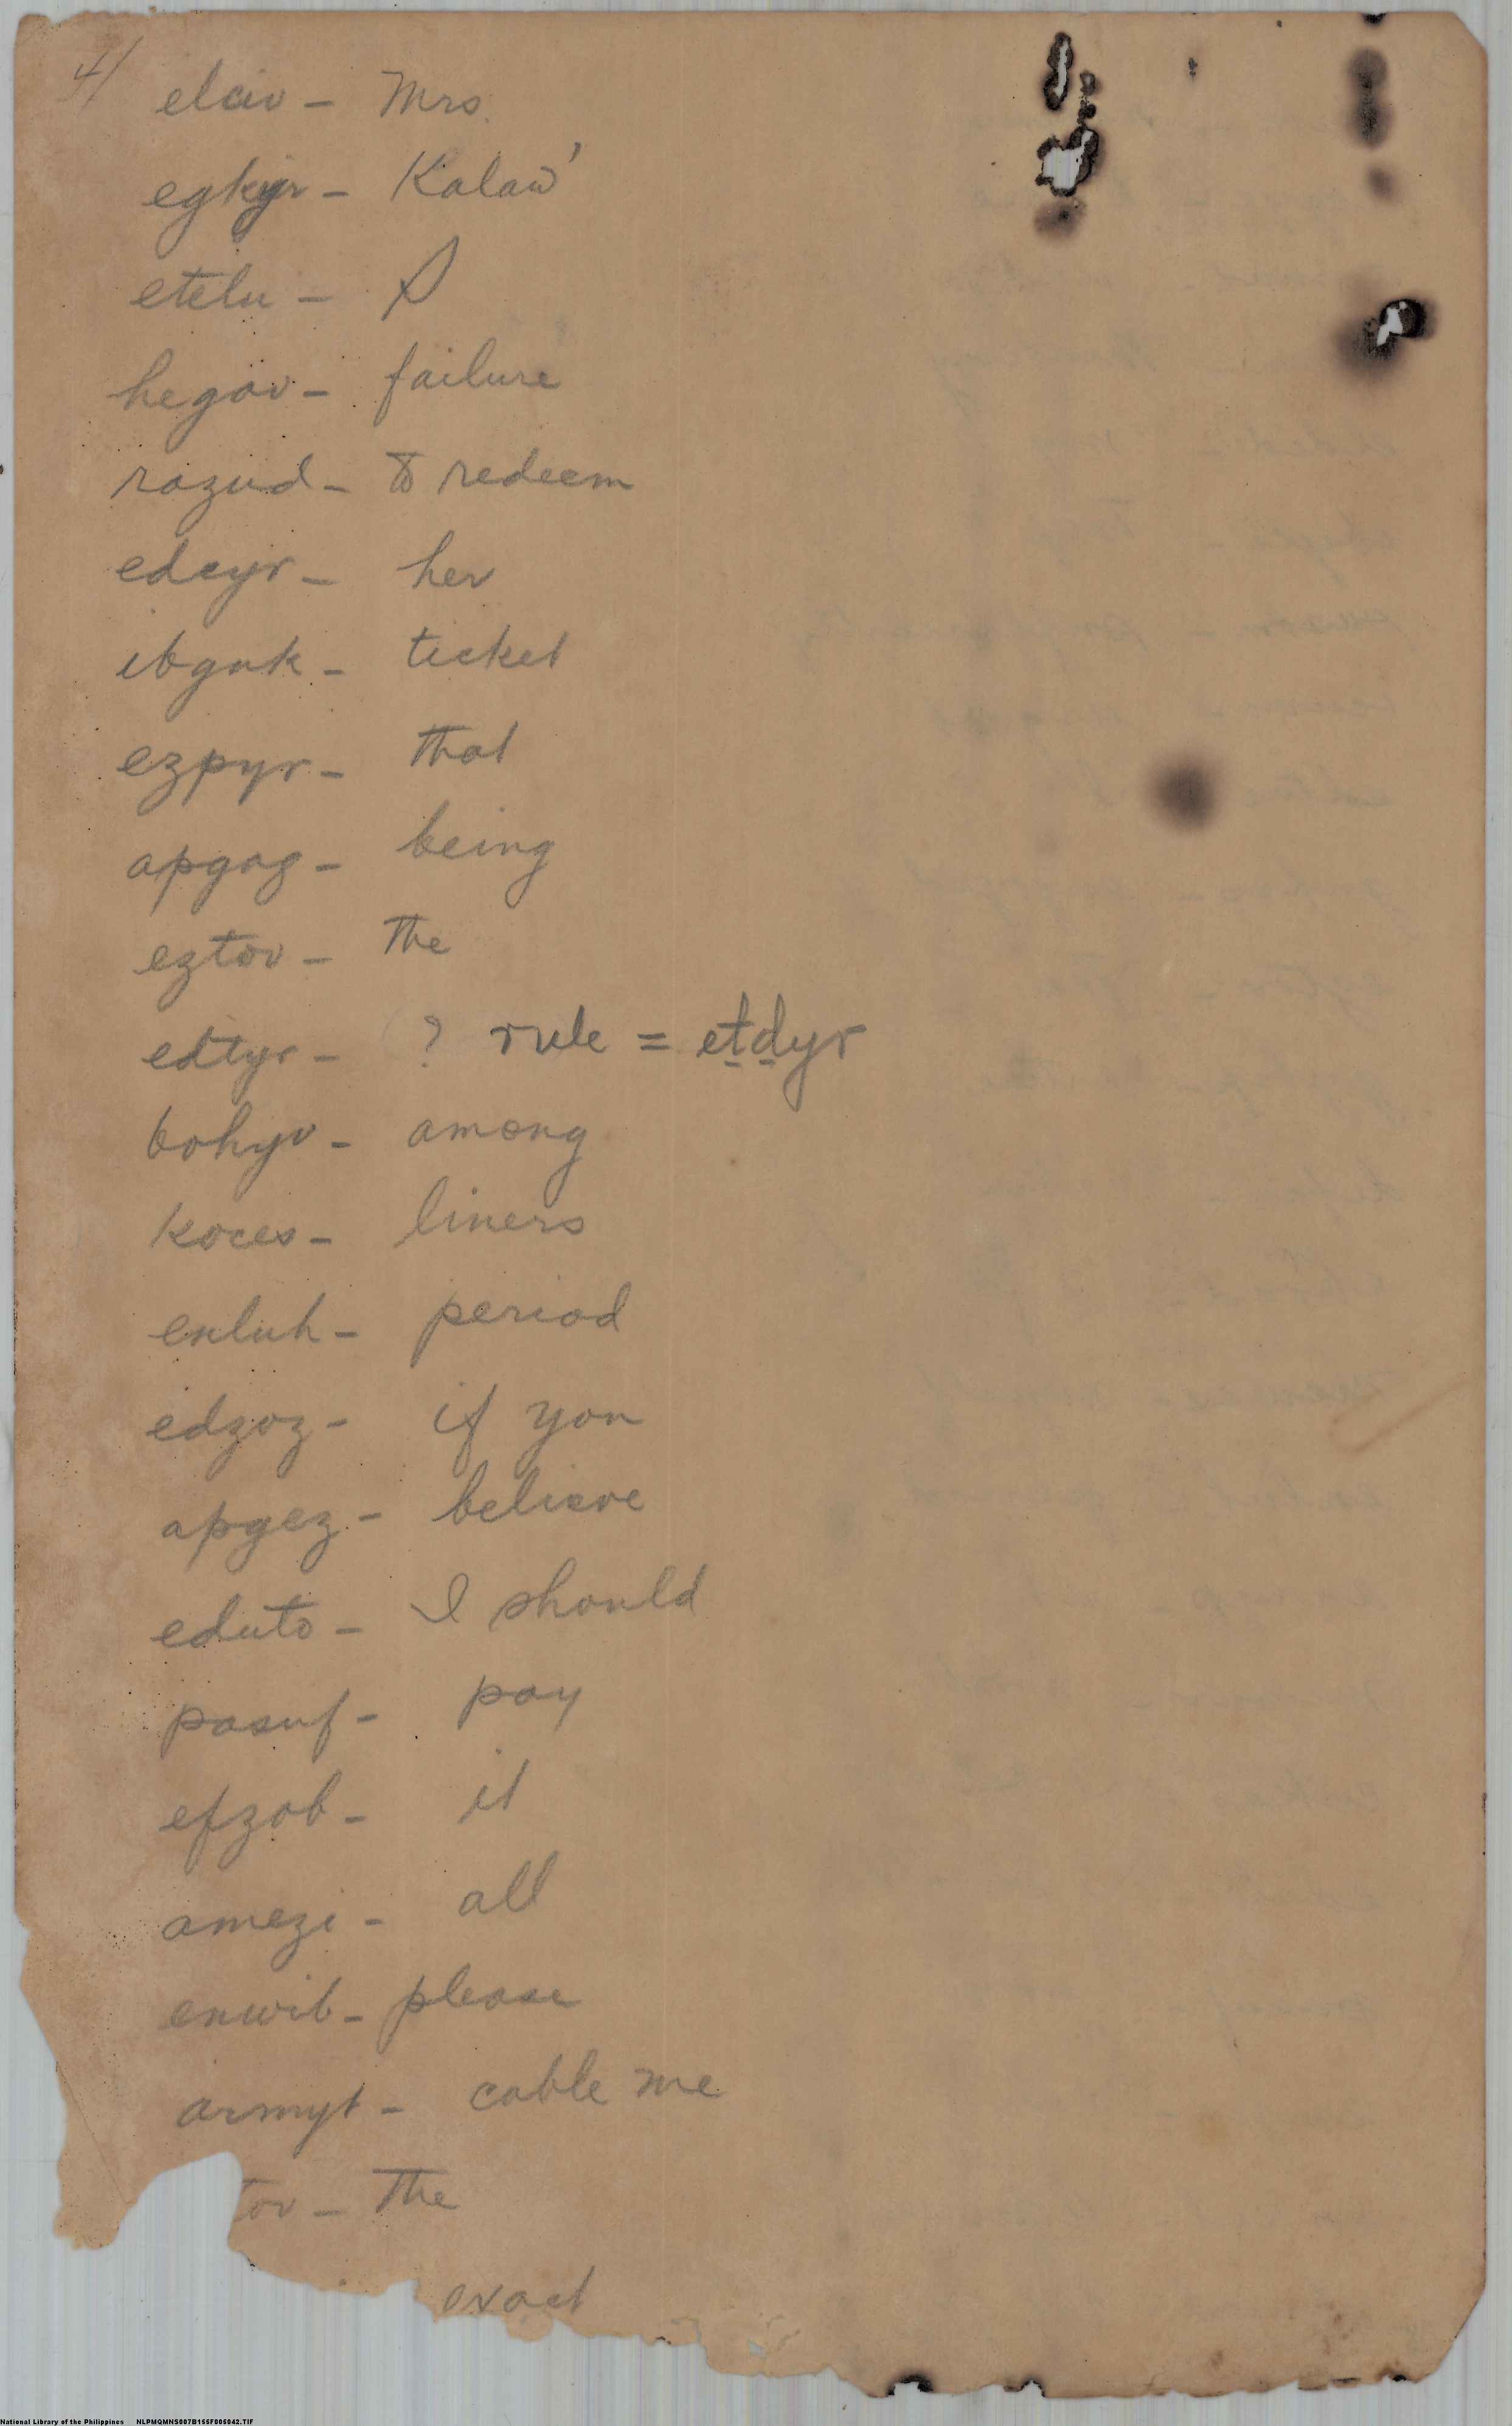 4/
elciv - Mrs.
egkyr - Kalaw'
etelu - S
hegov - failure
razud - to redeem
edcyr - her
ibguk - ticket
ezpyr - that
apgag - being
eztov - the
edtyr - ? rule = etdyr
bohyv - among
koces - liners
enluh - period
edzoz - if you
apgez - believe
eduto - I should
pasuf - pay
efzob - it
amezi - all
enwib - please
armyt - cable me
tov - the
exact
National Library of the Philippines NLPMQMNS007B155F005042.TIF